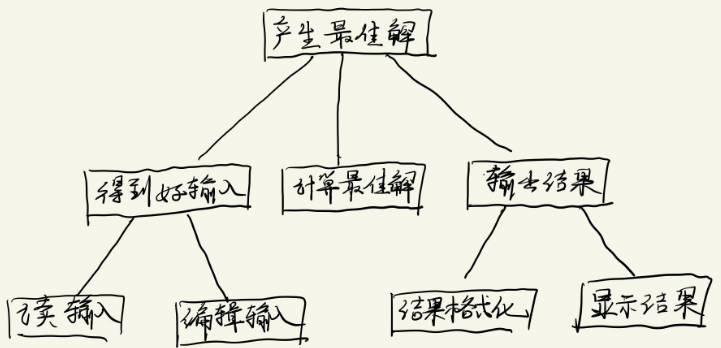 产生最佳解
得到好输入 计算最佳解 输出结果
读输入 编辑输入 结果格式化 显示结果